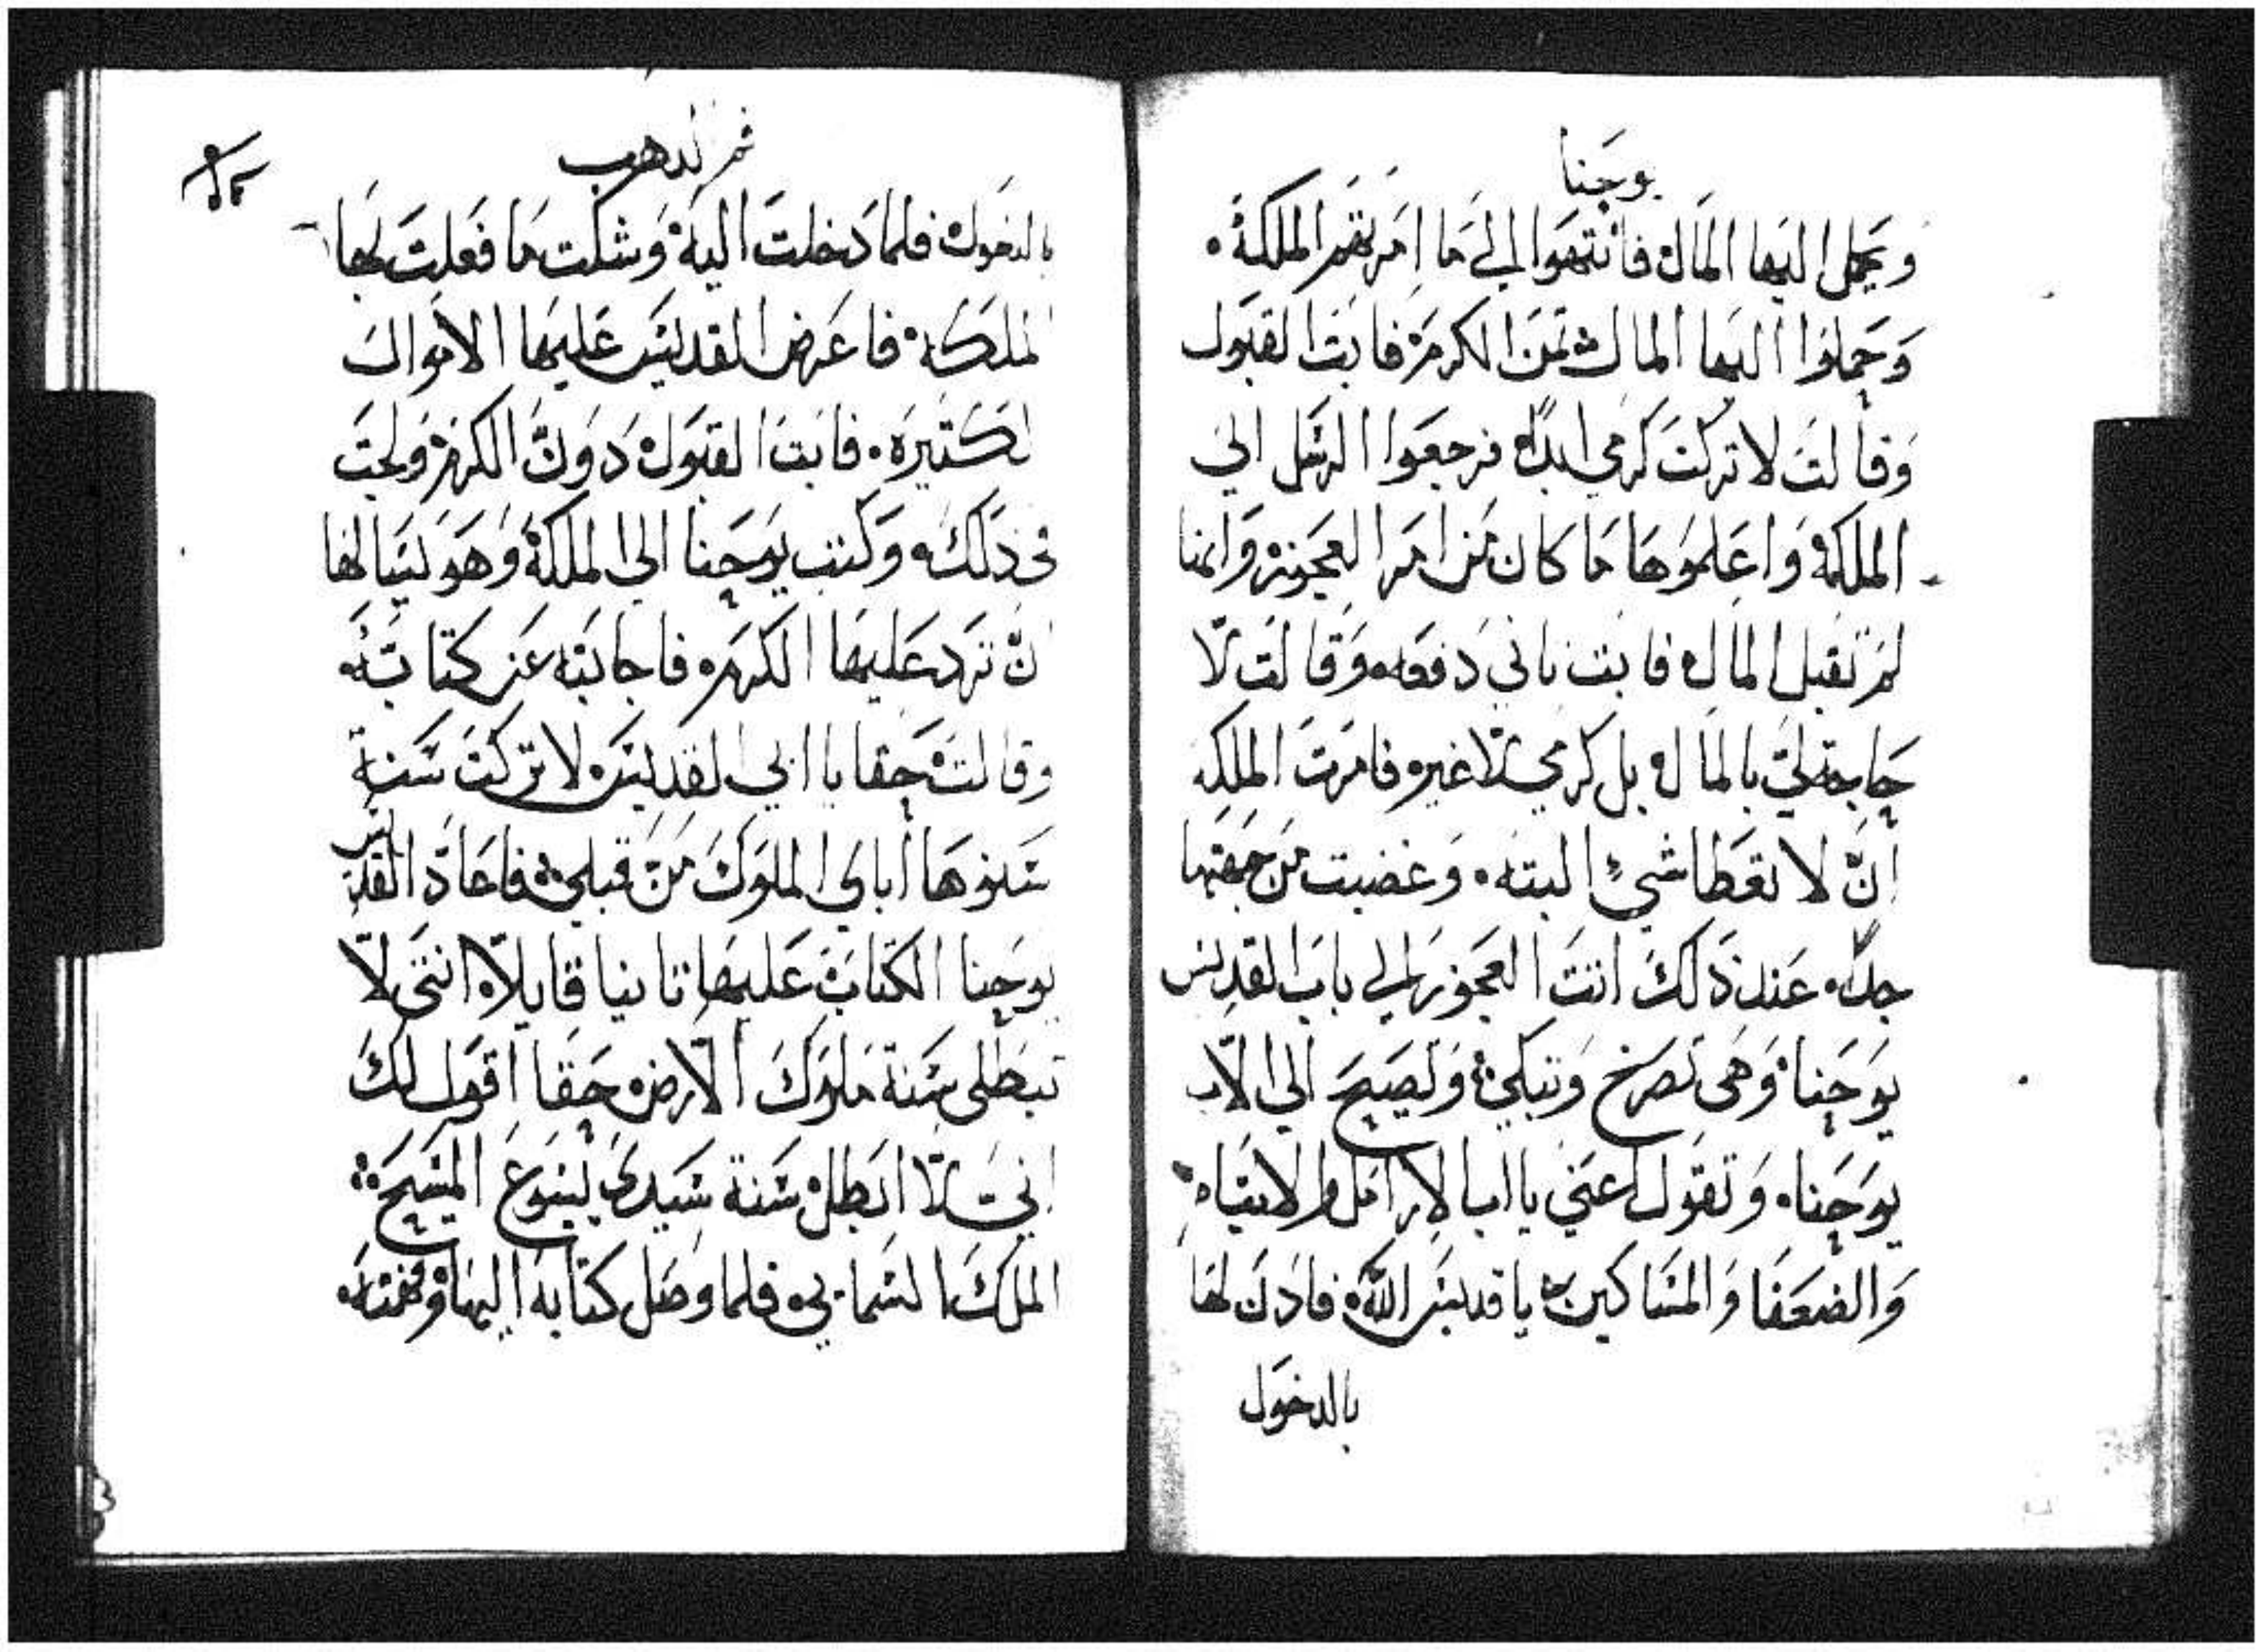 يوحنا
ويحمل اليها المال فانتهوا الى ما امرتهم الملكة
وحملوا اليها المال ثمن الكرمة فابت القبول
وقالت لا تركت كرمي ابدا فرجعوا الرسل الى
الملكة واعلموها ما كان من امر العجوزة وانها
لم تقبل المال فابت ثاني دفعه وقالت لا
حاجة لي بالمال بل كرمي لا غيره فامرت الملكة
ان لا تعطا شيء البتة وغضبت من جهتها
جدا عند ذلك اتت العجوز الى باب القديس
يوحنا وهي تصرخ وتبكي وتصيح الى الاب
يوحنا وتقول اعني يا ابا الارامل والايتام
والضعفا والمساكين يا قديس الله فاذن لها
بالدخول
ثم الدهب
بالدخول فلما دخلت اليه وشكت ما فعلت بها
الملكة فاعرض القديس عليها الاموال
الكثيرة فابت القبول دون الكرم ولجت
في ذلك وكتب يوحنا الى الملكة وهو يسالها
ان ترد عليها الكرمه فاجابته عن كتابته
وقالت حقا يا ابي القديس لا تركت سنة
سنوها اباي الملوك من قبلي فاعاد القديس
يوحنا الكتاب عليها ثانيا قايلا انتي لا
تبطلي سنة ملوك الارض حقا اقول لك
اني لا ابطل سنة سيدي يسوع المسيح
الملك السمايي فلما وصل كتابه اليها وفهمته